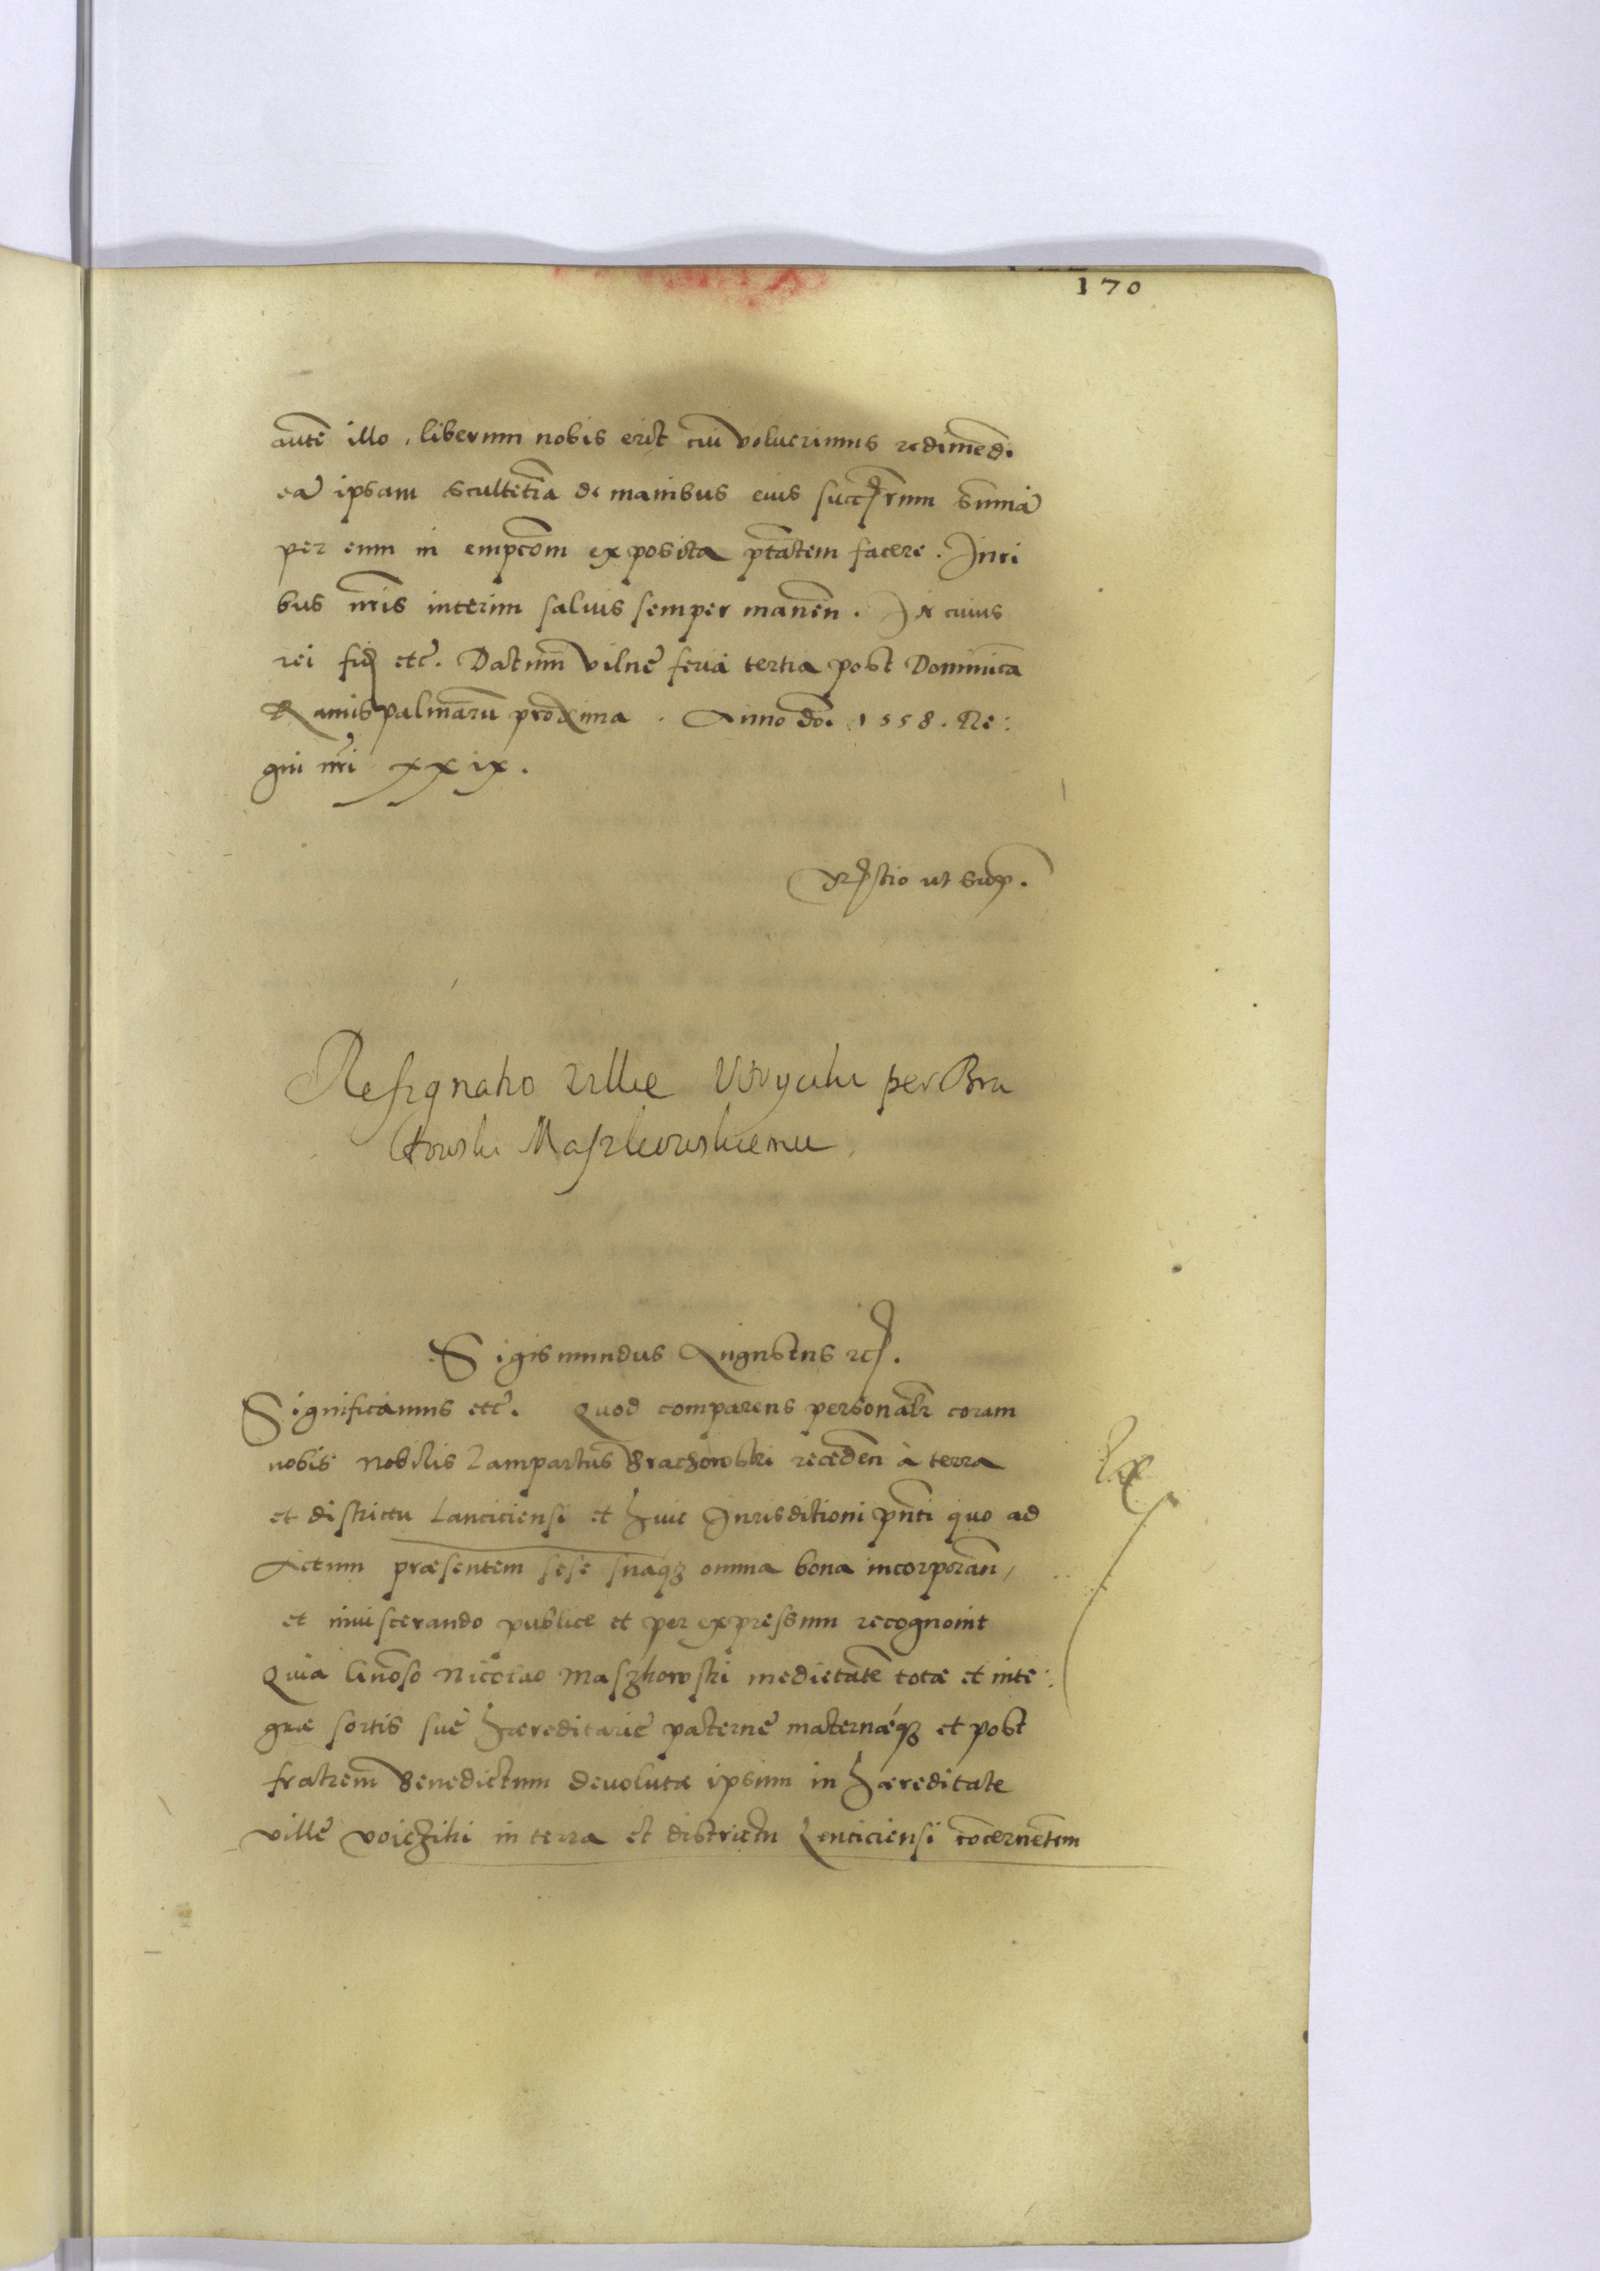 170
autē illo, liberum nobis erit cū voluerimus redimēdi
eā ipsam scultetiā de manibus eius successorum summā
per eum in empcōm exposita ptātem facere. Juri
bus nr̄is interim salvis semper manēn. In cuius
rei fidē etc. Datum Vilnę feria tertia post Dominicā
Ramispalmarū proxima. Anno dō. 1558. Re:
gni nr̄i xxix.
Rlstio ut sup.
Resignatio villae per Bra
Maszkowskiemu
Sigismundus Augustus rex.
Significamus etc. Quod comparens personalr̄ coram
nobis Nobilis Lampartus Brachowski recedēn à terra
et districtu Lanciciensi et huic Jurisditioni pn̄ti quo ad
Actum præsentem sese suaqȝ omnia bona incorporan̄,
et inuiscerando publice et per expressum recognouit
Quia Gn̄oso Nicolao Maszkowski medietatē totæ et inte:
græ sortis suę hæreditarię paternę maternæqȝ et post
fratrem Benedictum devolutæ ipsum in hæreditate
villę Voiczihi in terra et districtu Lenciciensi cōcernētem